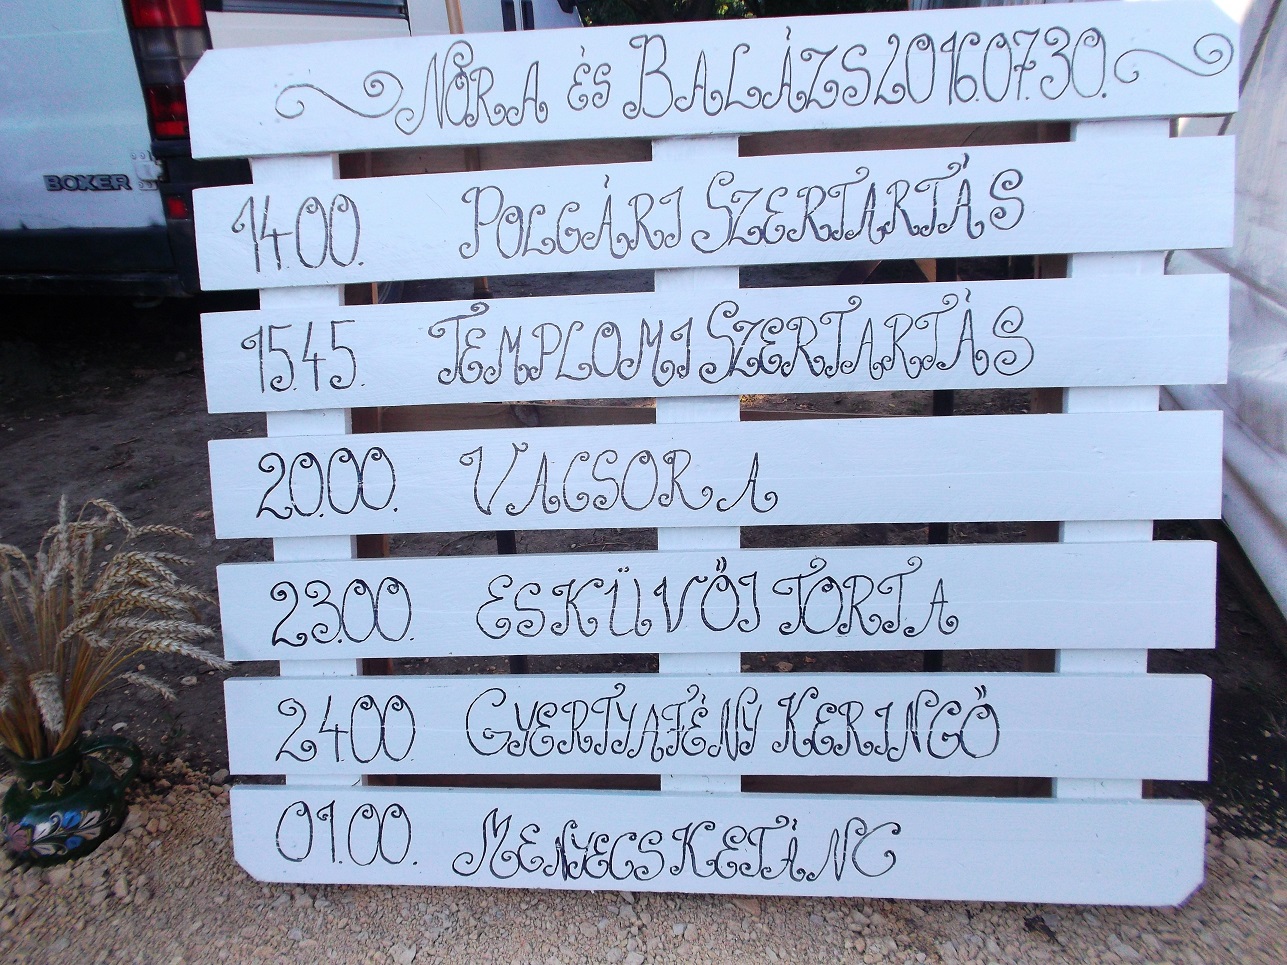 NÓRA ÉS BALÁZS 2016.07.30.
14.00. POLGÁRI SZERTARTÁS
15.45. TEMPLOMI SZERTARTÁS
20.00. VACSORA
23.00. ESKÜVŐI TORTA
24.00 GYERTYAFÉNY KERINGŐ
01.00. MENYECSKETÁNC
BOXER